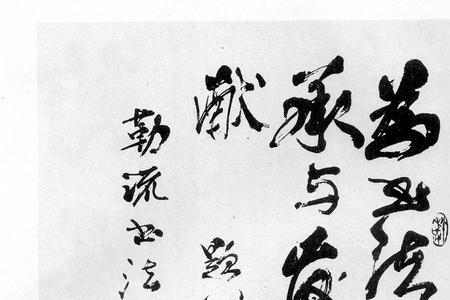 为书法
承与发
献 题
勒流书法